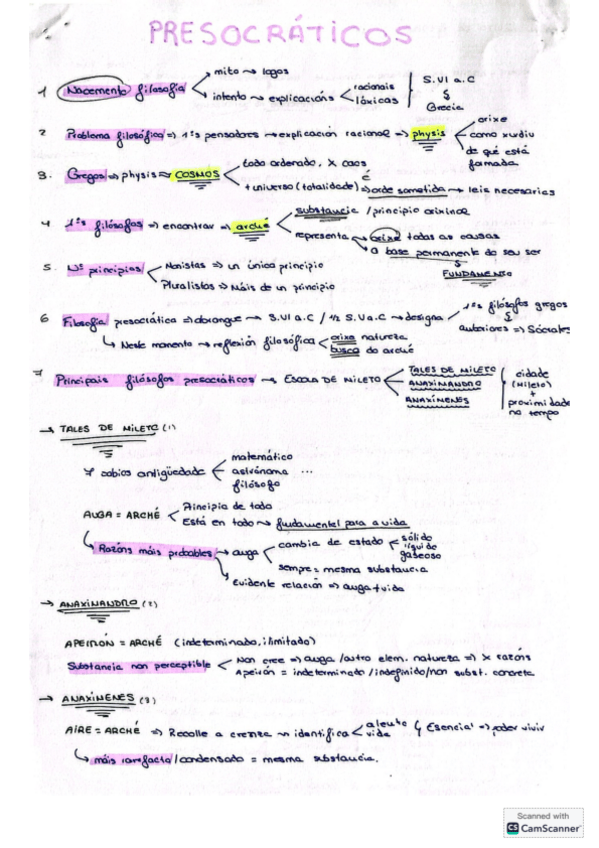 PRESOCRÁTICOS
mito → logos
1 Nacemento filosofía
intento → explicacións
racionais
lóxicas
S.VI a.C
Grecia
2 Problema filosófico ⇒ 1ºs pensadores → explicación racional ⇒ physis
orixe
como xurdiu
de que está
formada
3. Gregos ⇒ physis ≈ COSMOS
todo ordenado, X caos
é
+ universo (totalidade) ⇒ orde sometida → leis necesarias
4 1ºs filósofos ⇒ encontrar ⇒ arché
substancia / principio orixinal
representa
orixe todas as causas
a base permanente do seu ser
FUNDAMENTO
5. Nº principios
Monistas ⇒ un único principio
Pluralistas ⇒ Máis de un principio
6 Filosofía presocrática ⇒ abrangue → S.VI a.C / 1/2 S.V a.C → designa
1ºs filósofos gregos
anteriores ⇒ Sócrates
↳ Neste momento → reflexión filosófica
orixe natureza
busca do arché
7 Principais filósofos presocráticos → ESCOLA DE MILETO
TALES DE MILETO
ANAXIMANDRO
ANAXÍMENES
cidade
(Mileto)
+
proximidade
no tempo
→ TALES DE MILETO (1)
7 sabios antigüedade
matemático
astrónomo ...
filósofo
AUGA = ARCHÉ
Principio de todo
Está en todo → fundamental para a vida
↳ Razóns máis probables
→ auga
cambia de estado
sólido
líquido
gaseoso
sempre = mesma substancia
Evidente relación ⇒ auga + vida
→ ANAXIMANDRO (2)
APEIRÓN = ARCHÉ (indeterminado, ilimitado)
Substancia non perceptible
Non cree ⇒ auga / outro elem. natureza ⇒ X razóns
Apeirón = indeterminado / indefinido / non subst. concreta
→ ANAXÍMENES (3)
AIRE = ARCHÉ ⇒ Recolle a crenza → identifica
alento
vida
Esencial ⇒ poder vivir
↳ máis rarefacto / condensado = mesma substancia.
Scanned with
CS CamScanner